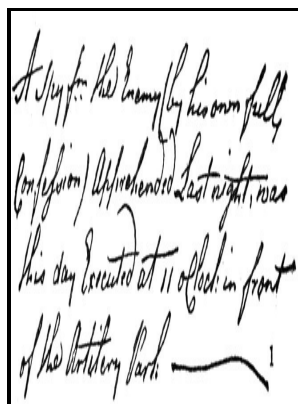 A Spy fm: the Enemy (by his own full
Confession) Apprehended Last night, was
this day Executed at 11 oClock in front
of the Artilery Park
1